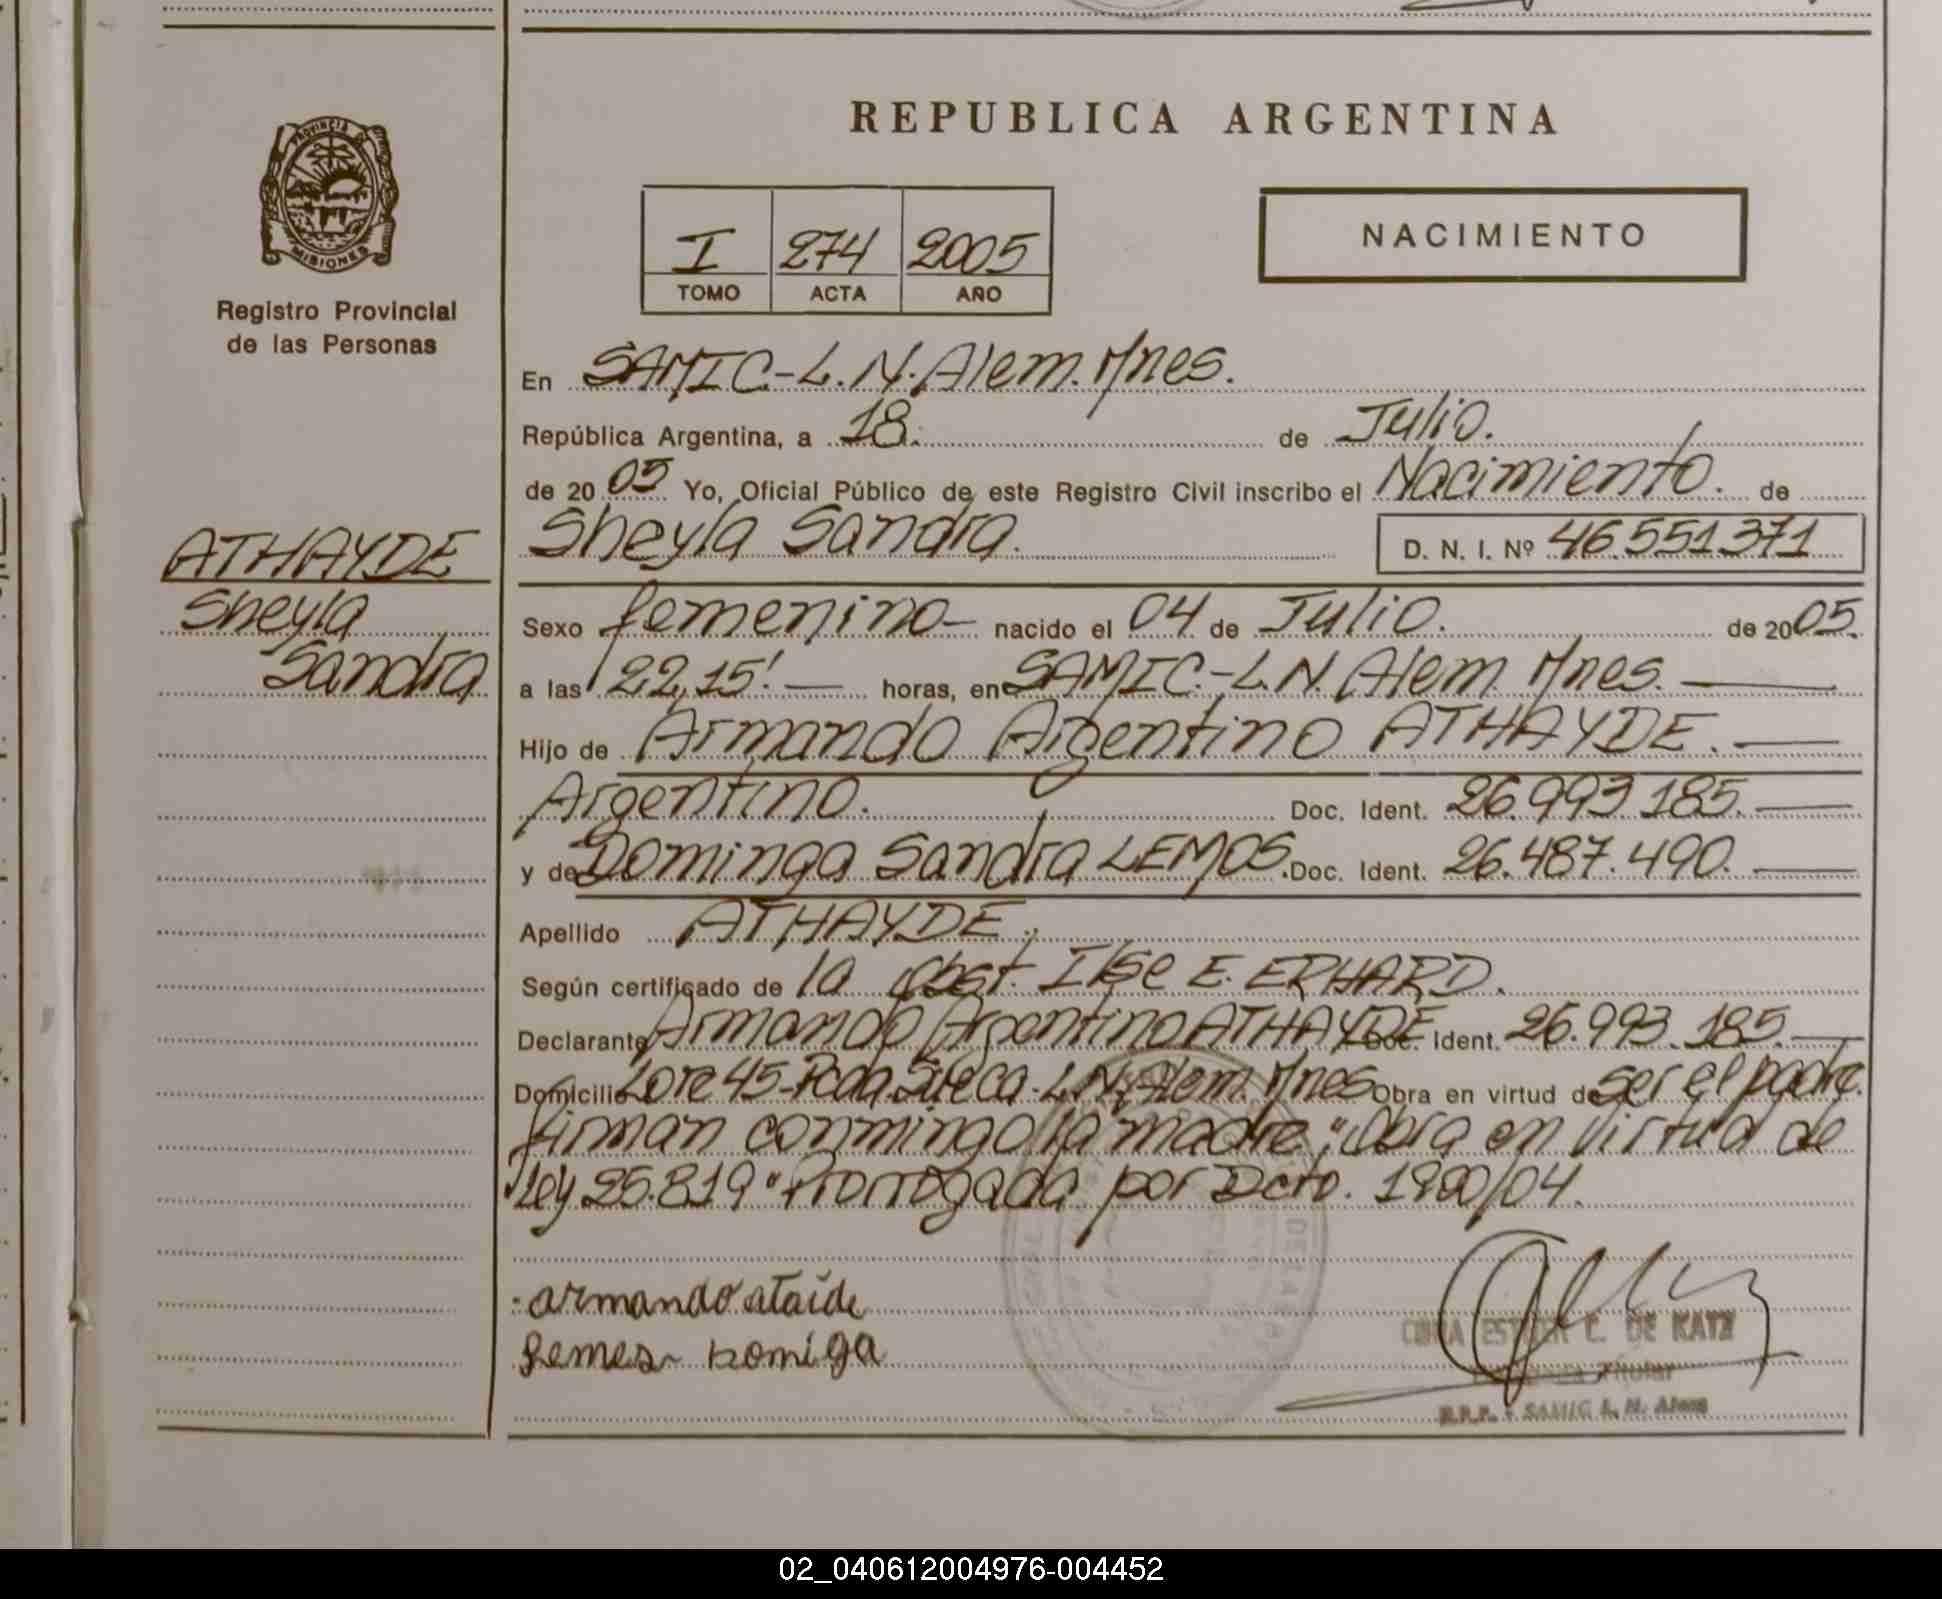 REPUBLICA ARGENTINA
PROVINCIA DE
MISIONES
Registro Provincial
de las Personas
I 274 2005
TOMO ACTA AÑO
NACIMIENTO
En SAMIC.-L.N.Alem.Mnes.
República Argentina, a 18. de Julio.
de 20 05 Yo, Oficial Público de este Registro Civil inscribo el Nacimiento. de
Sheyla Sandra. D. N. I. Nº 46.551.371
ATHAYDE
Sheyla
Sandra
Sexo femenino- nacido el 04 de Julio. de 2005.
a las 22,15'.— horas, en SAMIC.-L.N. Alem. Mnes.—
Hijo de Armando Argentino ATHAYDE.—
Argentino. Doc. Ident. 26.993.185.—
y de Dominga Sandra LEMOS. Doc. Ident. 26.487.490.—
Apellido ATHAYDE.
Según certificado de la Obst. Ilse E. ERHARD.
Declarante Armando Argentino ATHAYDE Doc. Ident. 26.993.185.—
Domicilio Lote 45-Pcda.Sueca.L.N.Alem.Mnes Obra en virtud de ser el padre.
firman conmingo la madre; "Obra en virtud de
Ley 25.819" Prorrogada por Dcto. 1900/04.
armando ataíde
Lemes
E. DE KATZ
Titular
R.P.P. - SAMIC L. N. Alem
02_040612004976-004452